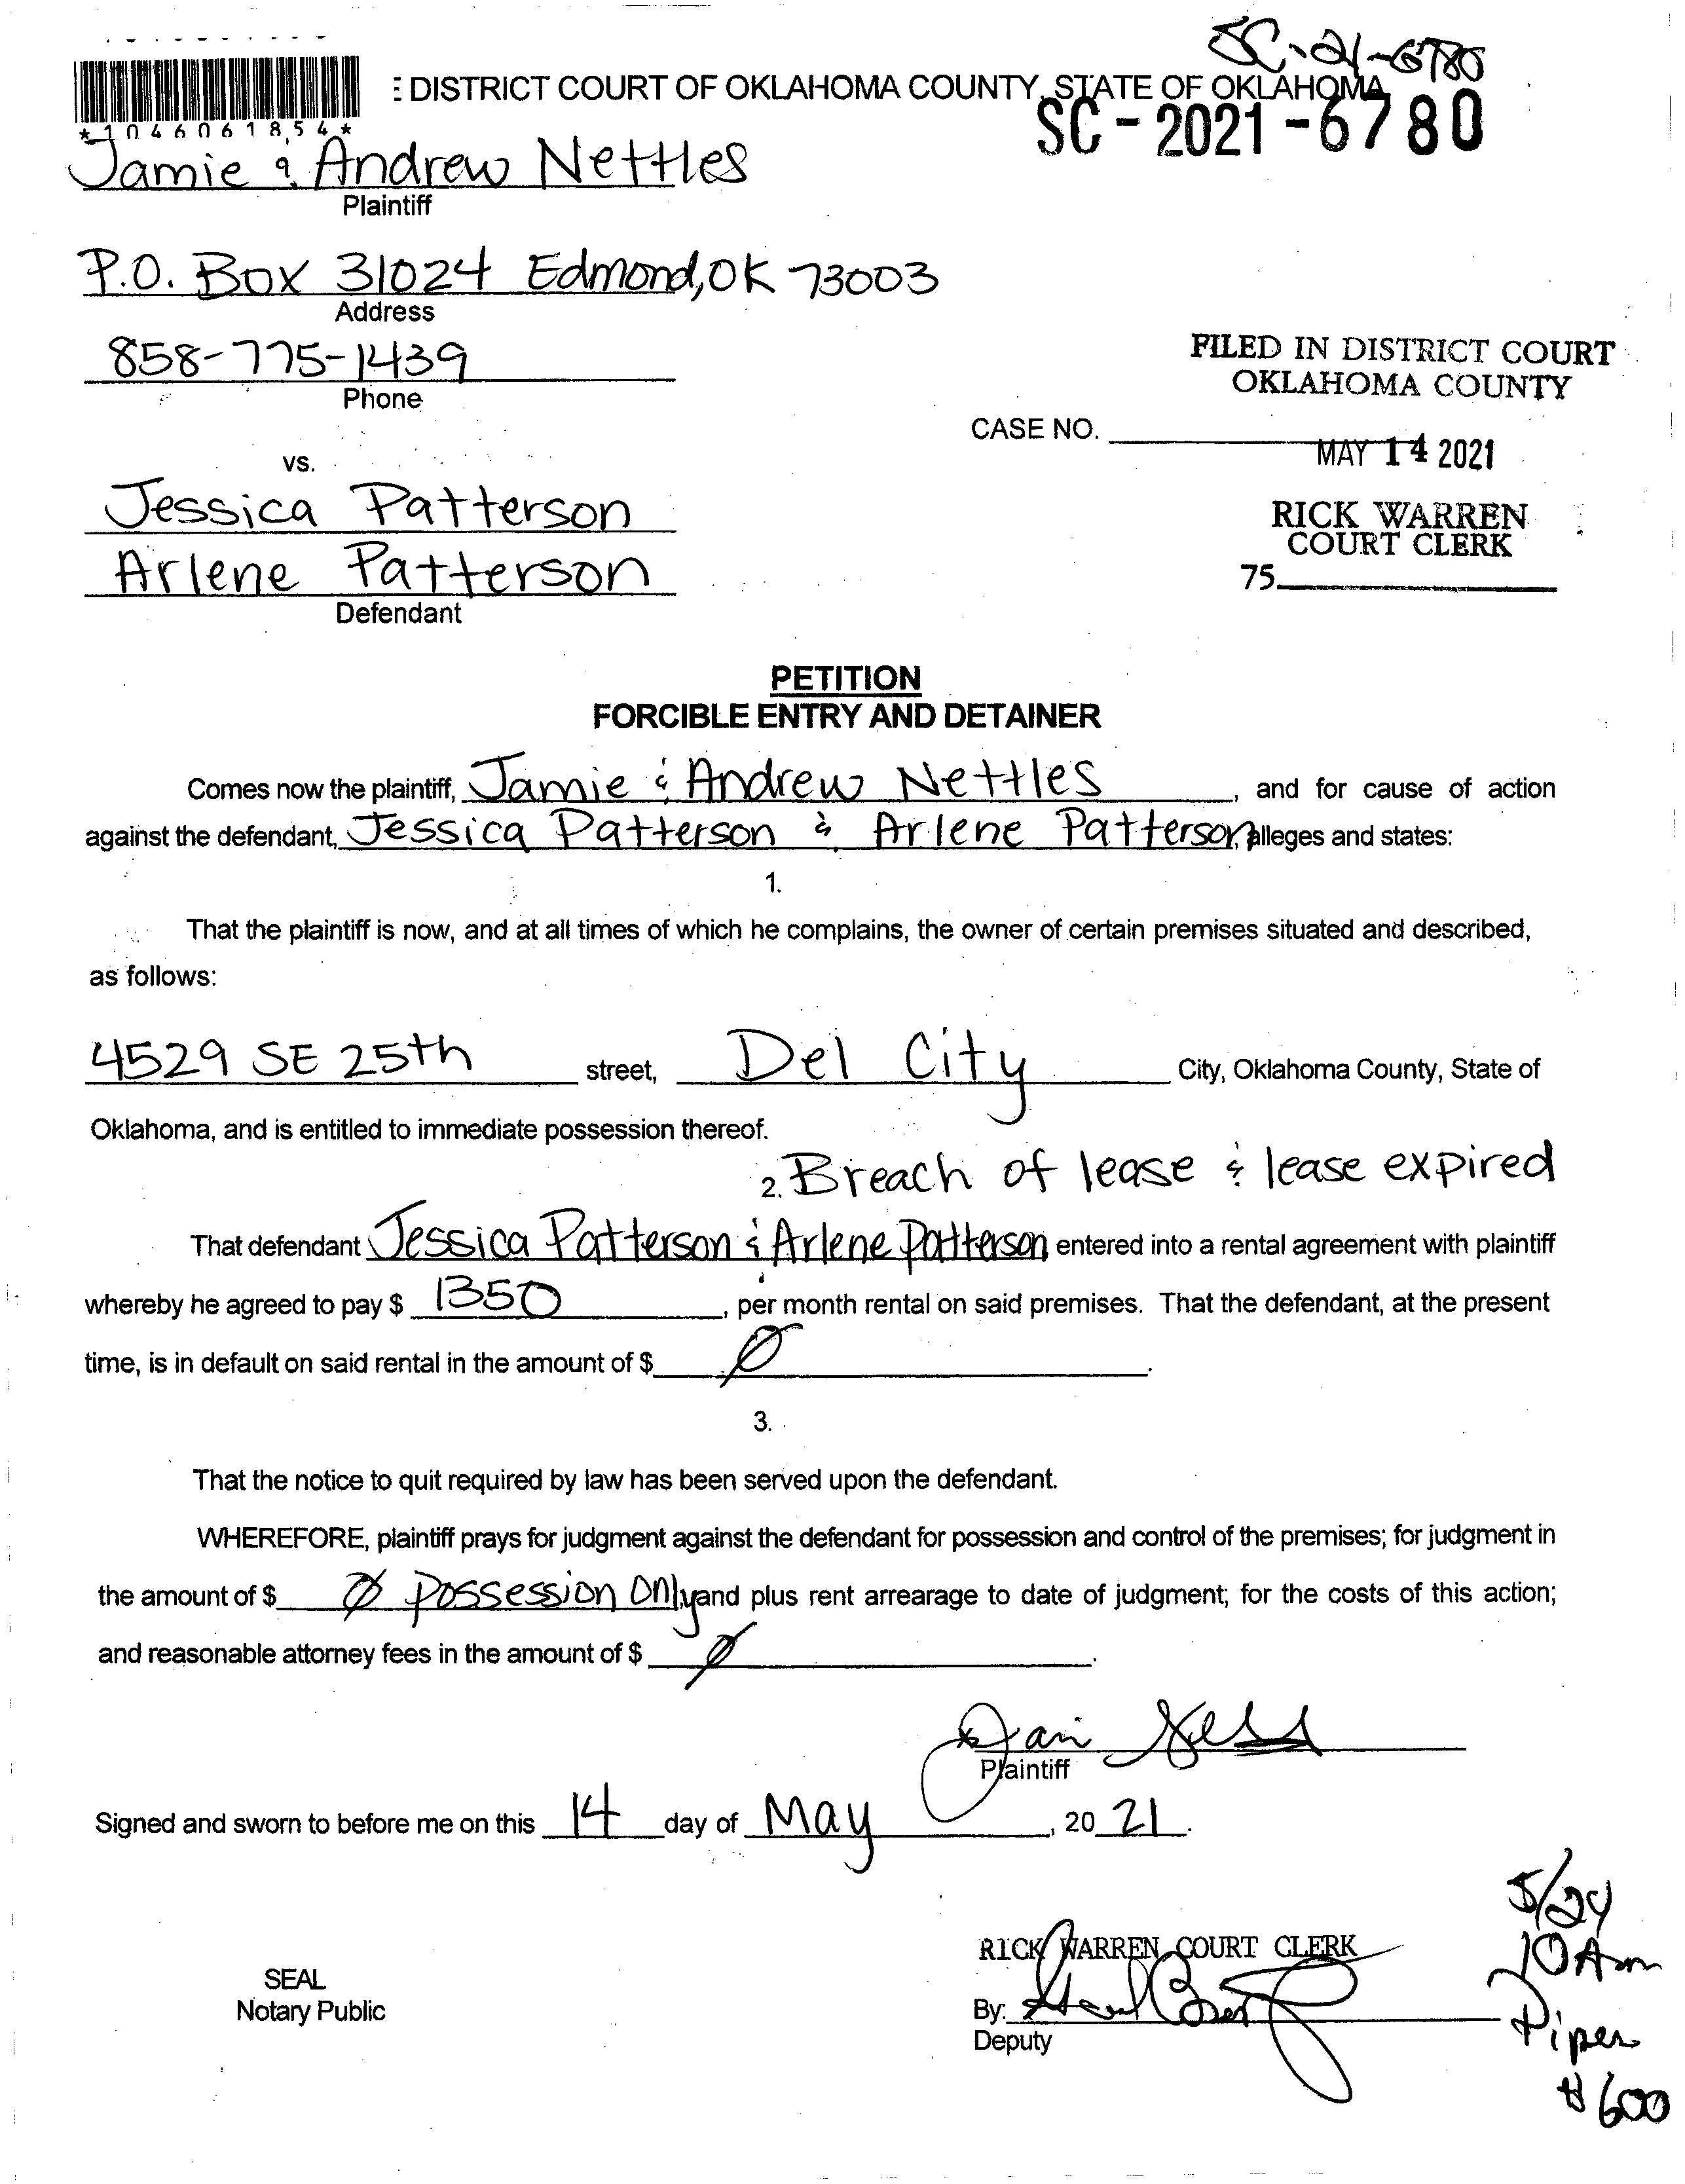 SC-21-6780
: DISTRICT COURT OF OKLAHOMA COUNTY, STATE OF OKLAHOMA
SC-2021-6780
*1046061854*
Jamie & Andrew Nettles
Plaintiff
P.O. Box 31024 Edmond, OK 73003
Address
858-775-1439
Phone
FILED IN DISTRICT COURT
OKLAHOMA COUNTY
CASE NO.
MAY 14 2021
vs.
Jessica Patterson
RICK WARREN
COURT CLERK
Arlene Patterson
75
Defendant
PETITION
FORCIBLE ENTRY AND DETAINER
Comes now the plaintiff, Jamie & Andrew Nettles, and for cause of action
against the defendant, Jessica Patterson & Arlene Patterson, alleges and states:
1.
That the plaintiff is now, and at all times of which he complains, the owner of certain premises situated and described,
as follows:
4529 SE 25th street, Del City City, Oklahoma County, State of
Oklahoma, and is entitled to immediate possession thereof.
2. Breach of lease & lease expired
That defendant Jessica Patterson & Arlene Patterson entered into a rental agreement with plaintiff
whereby he agreed to pay $ 1350, per month rental on said premises. That the defendant, at the present
time, is in default on said rental in the amount of $ Ø.
3.
That the notice to quit required by law has been served upon the defendant.
WHEREFORE, plaintiff prays for judgment against the defendant for possession and control of the premises; for judgment in
the amount of $ Ø Possession Only and plus rent arrearage to date of judgment; for the costs of this action;
and reasonable attorney fees in the amount of $ Ø.
Plaintiff
Signed and sworn to before me on this 14 day of May, 20 21.
5/24
10 Am
Piper
#600
RICK WARREN COURT CLERK
SEAL
Notary Public
By:
Deputy